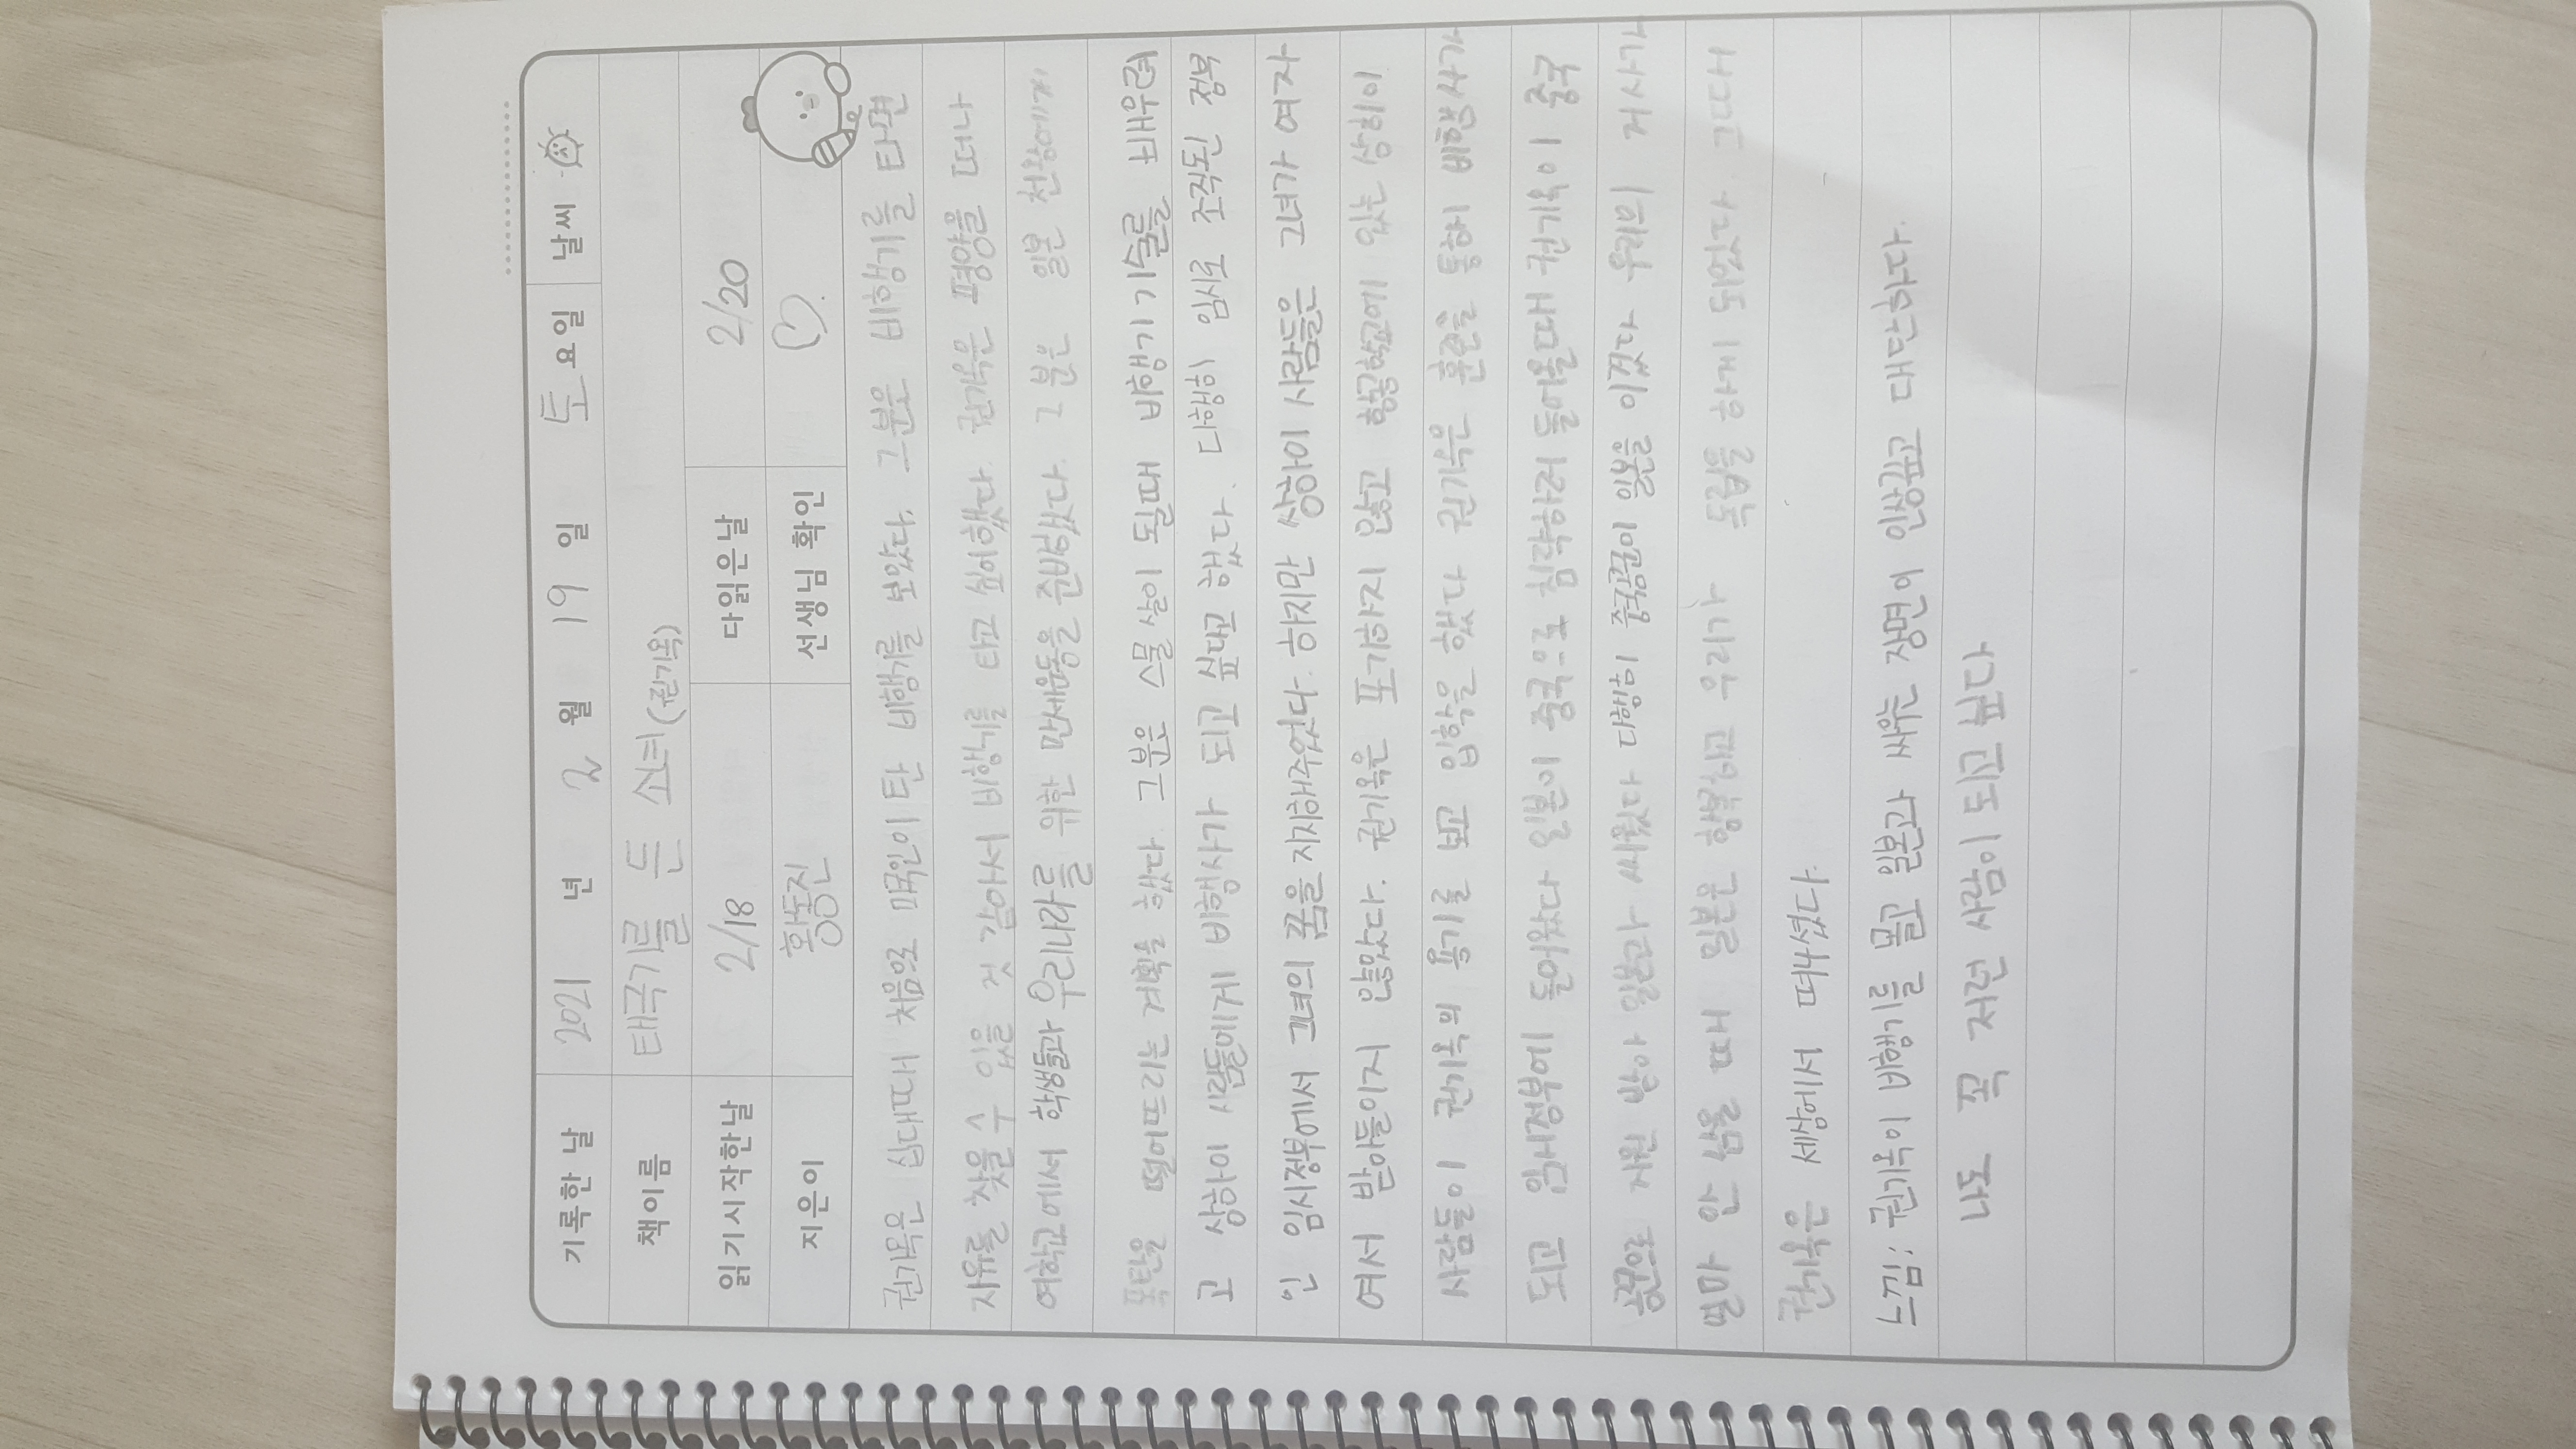 기록한 날 2021 년 2 월 19 일 토 요일 날씨
책이름 태극기를 든 소녀 (권기옥)
읽기시작한날 2/18 다읽은날 2/20
지은이 황동진 선생님 확인
권기옥은 십대때 처음으로 미국인이 탄 비행기를 보았다. 그분은 비행기를 타면
자유를 찾을 수 있을 것 같아서 비행기를 타고 싶어했다. 권기옥은 평양을 떠나
여학교에서 학생들과 우리나라를 위한 만세운동을 준비했다. 그분은 일본 천왕에게
폭탄을 떨어뜨리는 계획을 했다. 그분은 스물살이 될때 비행기 기술를 배우려
고 상하이 사람들에게 비행사가 되고 싶다고 했다. 다행히 임시로 조직된 정부
인 임시정부에서 그녀의 꿈을 지지해주었다. 하지만 상하이 사람들은 그녀가 여자
여서 받아들이지 않았다. 권기옥은 포기하지 않고 항공학교에 있는 상하이
사람들이 권기옥의 용기를 보고 입학을 했다 권기옥은 훈련을 통해 비행사가
되고 임시정부에 들어왔다 일본이 중국으로 침략하러 들어올때 권기옥이 중국
공군으로 지원 받아 일본과 싸웠다 다행히 중국공군이 일본을 이겼다 우리의
얼마 안 남을 때 일본은 항복하고 우리가 독립을 하게 되었다. 그때
권기옥은 세상에서 떠나셨다.
느낌: 권기옥이 비행기를 몰고 일본과 싸우는 장면이 인상깊고 대단하다.
나도 꼭 저런 사람이 되고 싶다